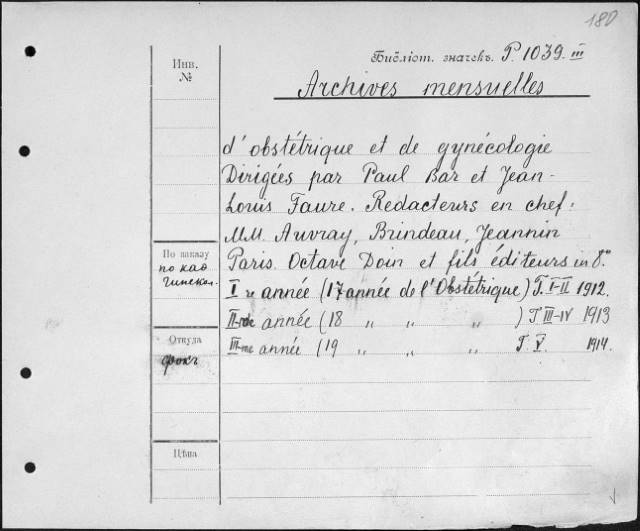 180
Инв.
№
Библіот. значекъ. P. 1039. III
Archives mensuelles
d'obstétrique et de gynécologie
Dirigées par Paul Bar et Jean-
Louis Faure. Redacteurs en chef:
MM. Auvray, Brindeau, Jeannin
По заказу
Paris. Octave Doin et fils éditeurs in 8°
I re année (17 année de l'Obstétrique) T. I-II 1912.
II-me année (18 " " " ) T III-IV 1913
Откуда
III-me année (19 " " " T. V. 1914.
Цѣна